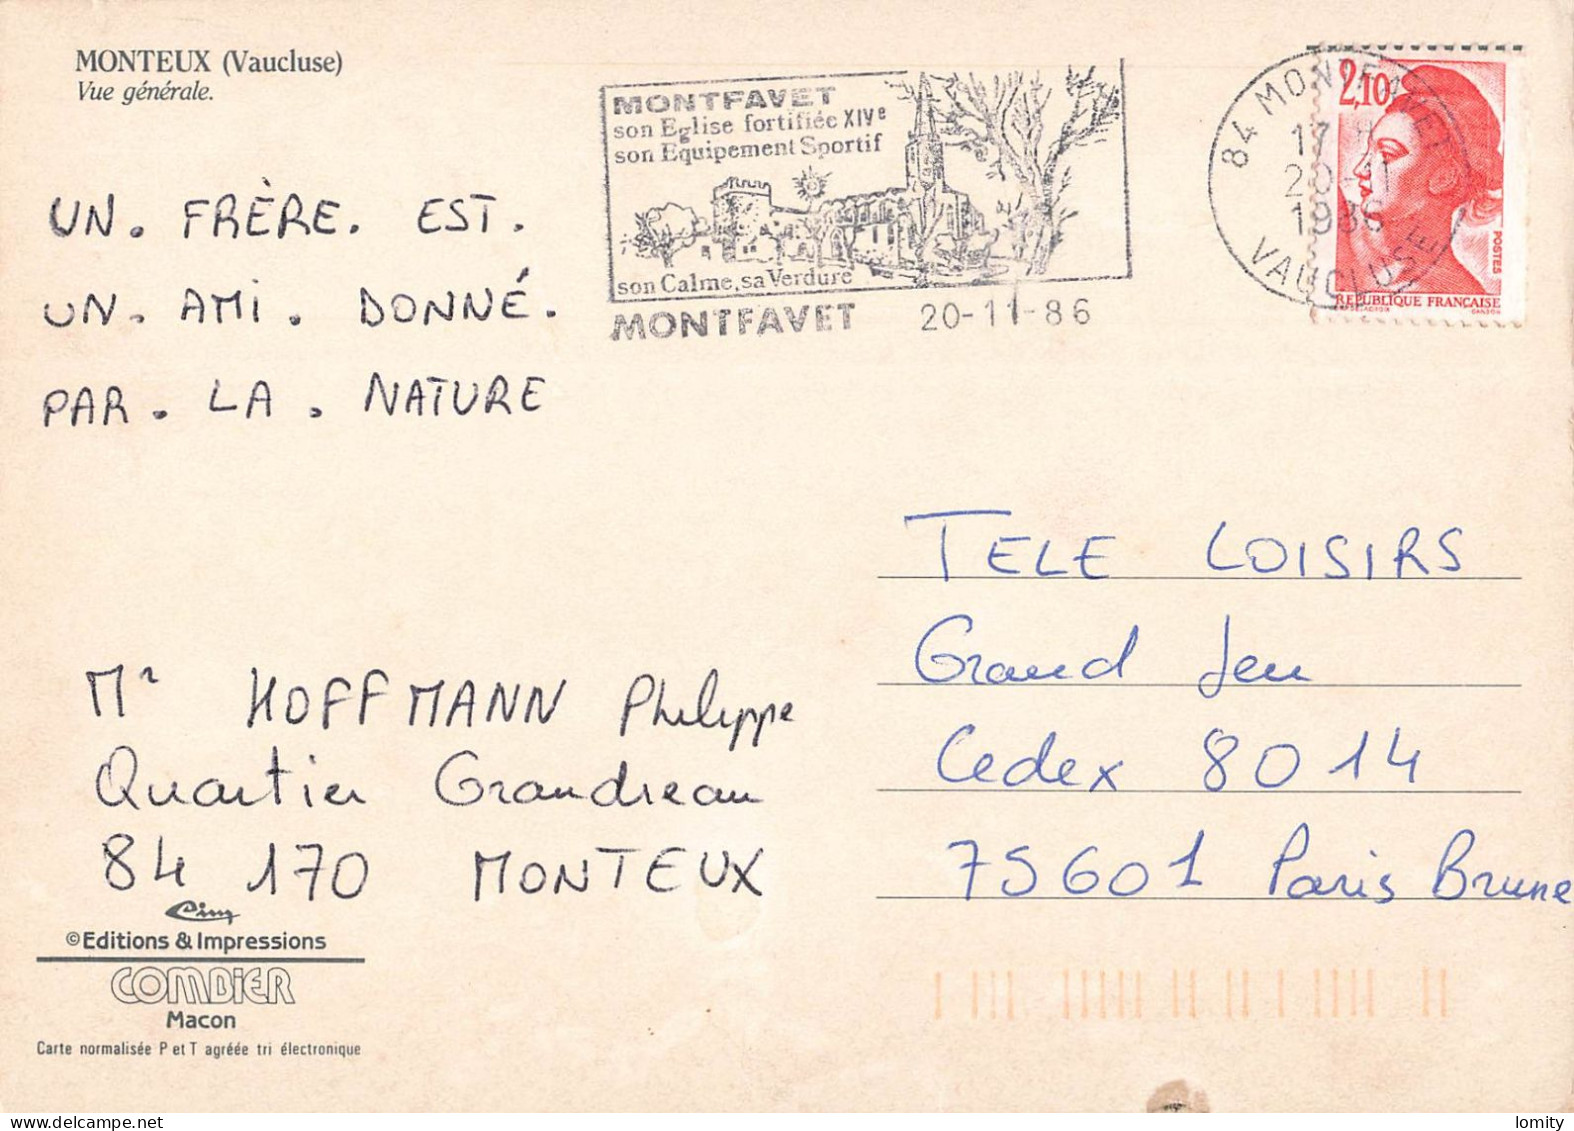 MONTEUX (Vaucluse)
Vue générale.
MONTFAVET
son Eglise fortifiée XIVe
son Equipement Sportif
son Calme, sa Verdure
MONTFAVET 20-11-86
84 MONTFAVET
17 H
20-11
1986
VAUCLUSE
2,10
POSTES
REPUBLIQUE FRANÇAISE
UN. FRÈRE. EST.
UN. AMI. DONNÉ.
PAR. LA. NATURE
TELE LOISIRS
Grand Jeu
Cedex 8014
75601 Paris Brune
Mr HOFFMANN Philippe
Quartier Grandreau
84 170 MONTEUX
Cim
©Editions & Impressions
COMBIER
Macon
Carte normalisée P et T agréée tri électronique
lomity